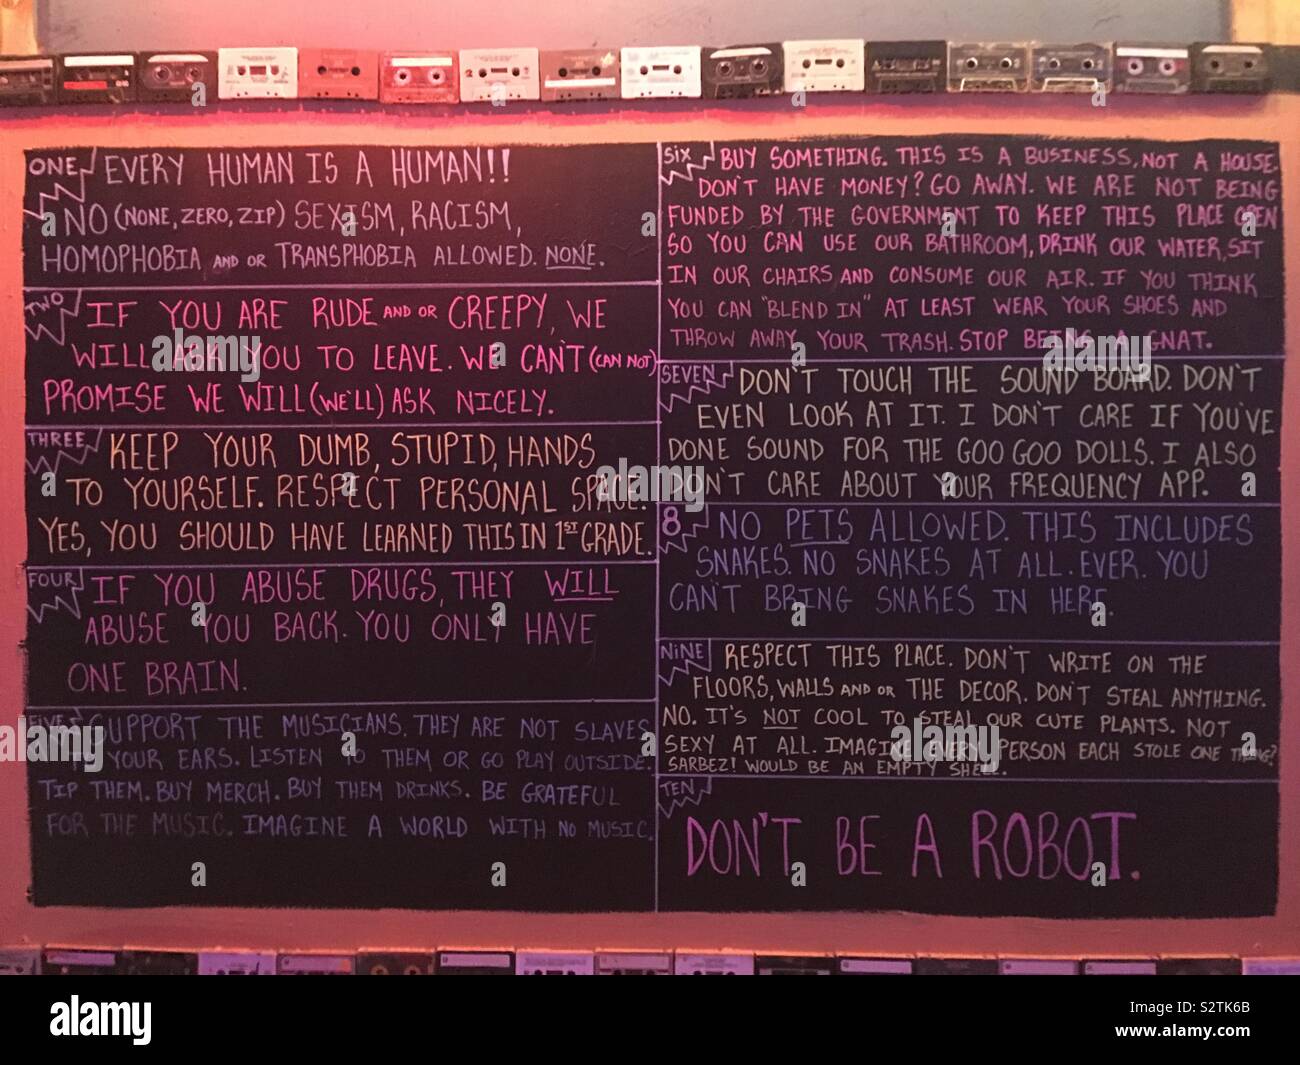 ONE
EVERY HUMAN IS A HUMAN!!
NO (NONE, ZERO, ZIP) SEXISM, RACISM,
HOMOPHOBIA AND OR TRANSPHOBIA ALLOWED. NONE.
TWO
IF YOU ARE RUDE AND OR CREEPY, WE
WILL ASK YOU TO LEAVE. WE CAN'T (CAN NOT)
PROMISE WE WILL (WE'LL) ASK NICELY.
THREE
KEEP YOUR DUMB, STUPID, HANDS
TO YOURSELF. RESPECT PERSONAL SPACE.
YES, YOU SHOULD HAVE LEARNED THIS IN 1ST GRADE.
FOUR
IF YOU ABUSE DRUGS, THEY WILL
ABUSE YOU BACK. YOU ONLY HAVE
ONE BRAIN.
FIVE
SUPPORT THE MUSICIANS. THEY ARE NOT SLAVES
TO YOUR EARS. LISTEN TO THEM OR GO PLAY OUTSIDE.
TIP THEM. BUY MERCH. BUY THEM DRINKS. BE GRATEFUL
FOR THE MUSIC. IMAGINE A WORLD WITH NO MUSIC.
SIX
BUY SOMETHING. THIS IS A BUSINESS, NOT A HOUSE.
DON'T HAVE MONEY? GO AWAY. WE ARE NOT BEING
FUNDED BY THE GOVERNMENT TO KEEP THIS PLACE OPEN
SO YOU CAN USE OUR BATHROOM, DRINK OUR WATER, SIT
IN OUR CHAIRS AND CONSUME OUR AIR. IF YOU THINK
YOU CAN "BLEND IN" AT LEAST WEAR YOUR SHOES AND
THROW AWAY YOUR TRASH. STOP BEING A GNAT.
SEVEN
DON'T TOUCH THE SOUND BOARD. DON'T
EVEN LOOK AT IT. I DON'T CARE IF YOU'VE
DONE SOUND FOR THE GOO GOO DOLLS. I ALSO
DON'T CARE ABOUT YOUR FREQUENCY APP.
8
NO PETS ALLOWED. THIS INCLUDES
SNAKES. NO SNAKES AT ALL. EVER. YOU
CAN'T BRING SNAKES IN HERE.
NINE
RESPECT THIS PLACE. DON'T WRITE ON THE
FLOORS, WALLS AND OR THE DECOR. DON'T STEAL ANYTHING.
NO. IT'S NOT COOL TO STEAL OUR CUTE PLANTS. NOT
SEXY AT ALL. IMAGINE EVERY PERSON EACH STOLE ONE THING?
SARBEZ! WOULD BE AN EMPTY SHELL.
TEN
DON'T BE A ROBOT.
alamy
Image ID: S2TK6B
www.alamy.com